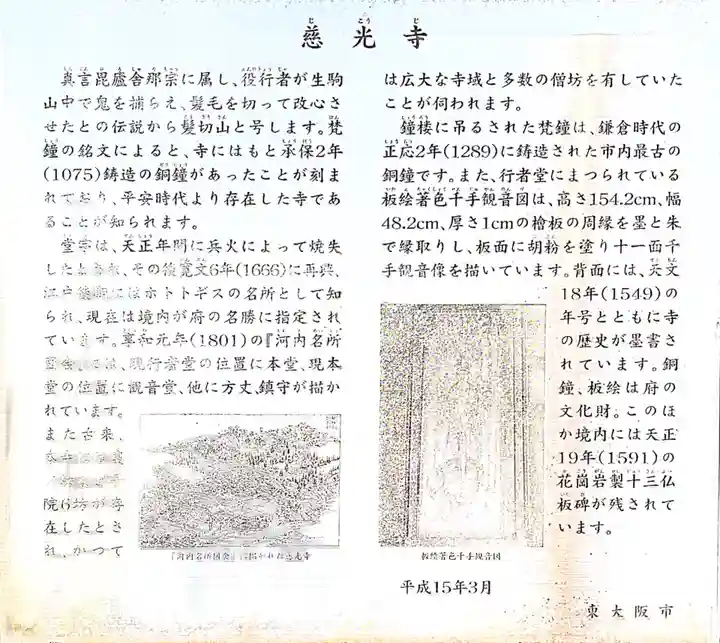 慈光寺
真言毘盧舎那宗に属し、役行者が生駒
山中で鬼を捕らえ、髪毛を切って改心さ
せたとの伝説から髪切山と号します。梵
鐘の銘文によると、寺にはもと承保2年
(1075)鋳造の銅鐘があったことが刻ま
れており、平安時代より存在した寺であ
ることが知られます。
堂宇は、天正年間に兵火によって焼失
したとされ、その後寛文6年(1666)に再興、
江戸後期にはホトトギスの名所として知
られ、現在は境内が府の名勝に指定され
ています。享和元年(1801)の『河内名所
図会』には、現行者堂の位置に本堂、現本
堂の位置に観音堂、他に方丈、鎮守が描か
れています。
また古来、
院6坊が存
在したとさ
れ、かつて
『河内名所図会』に描かれた慈光寺
は広大な寺域と多数の僧坊を有していた
ことが伺われます。
鐘楼に吊るされた梵鐘は、鎌倉時代の
正応2年(1289)に鋳造された市内最古の
銅鐘です。また、行者堂にまつられている
板絵著色千手観音図は、高さ154.2cm、幅
48.2cm、厚さ1cmの檜板の周縁を墨と朱
で縁取りし、板面に胡粉を塗り十一面千
手観音像を描いています。背面には、天文
18年(1549)の
年号とともに寺
の歴史が墨書さ
れています。銅
鐘、板絵は府の
文化財。このほ
か境内には天正
19年(1591)の
花崗岩製十三仏
板碑が残されて
います。
板絵著色千手観音図
平成15年3月
東大阪市